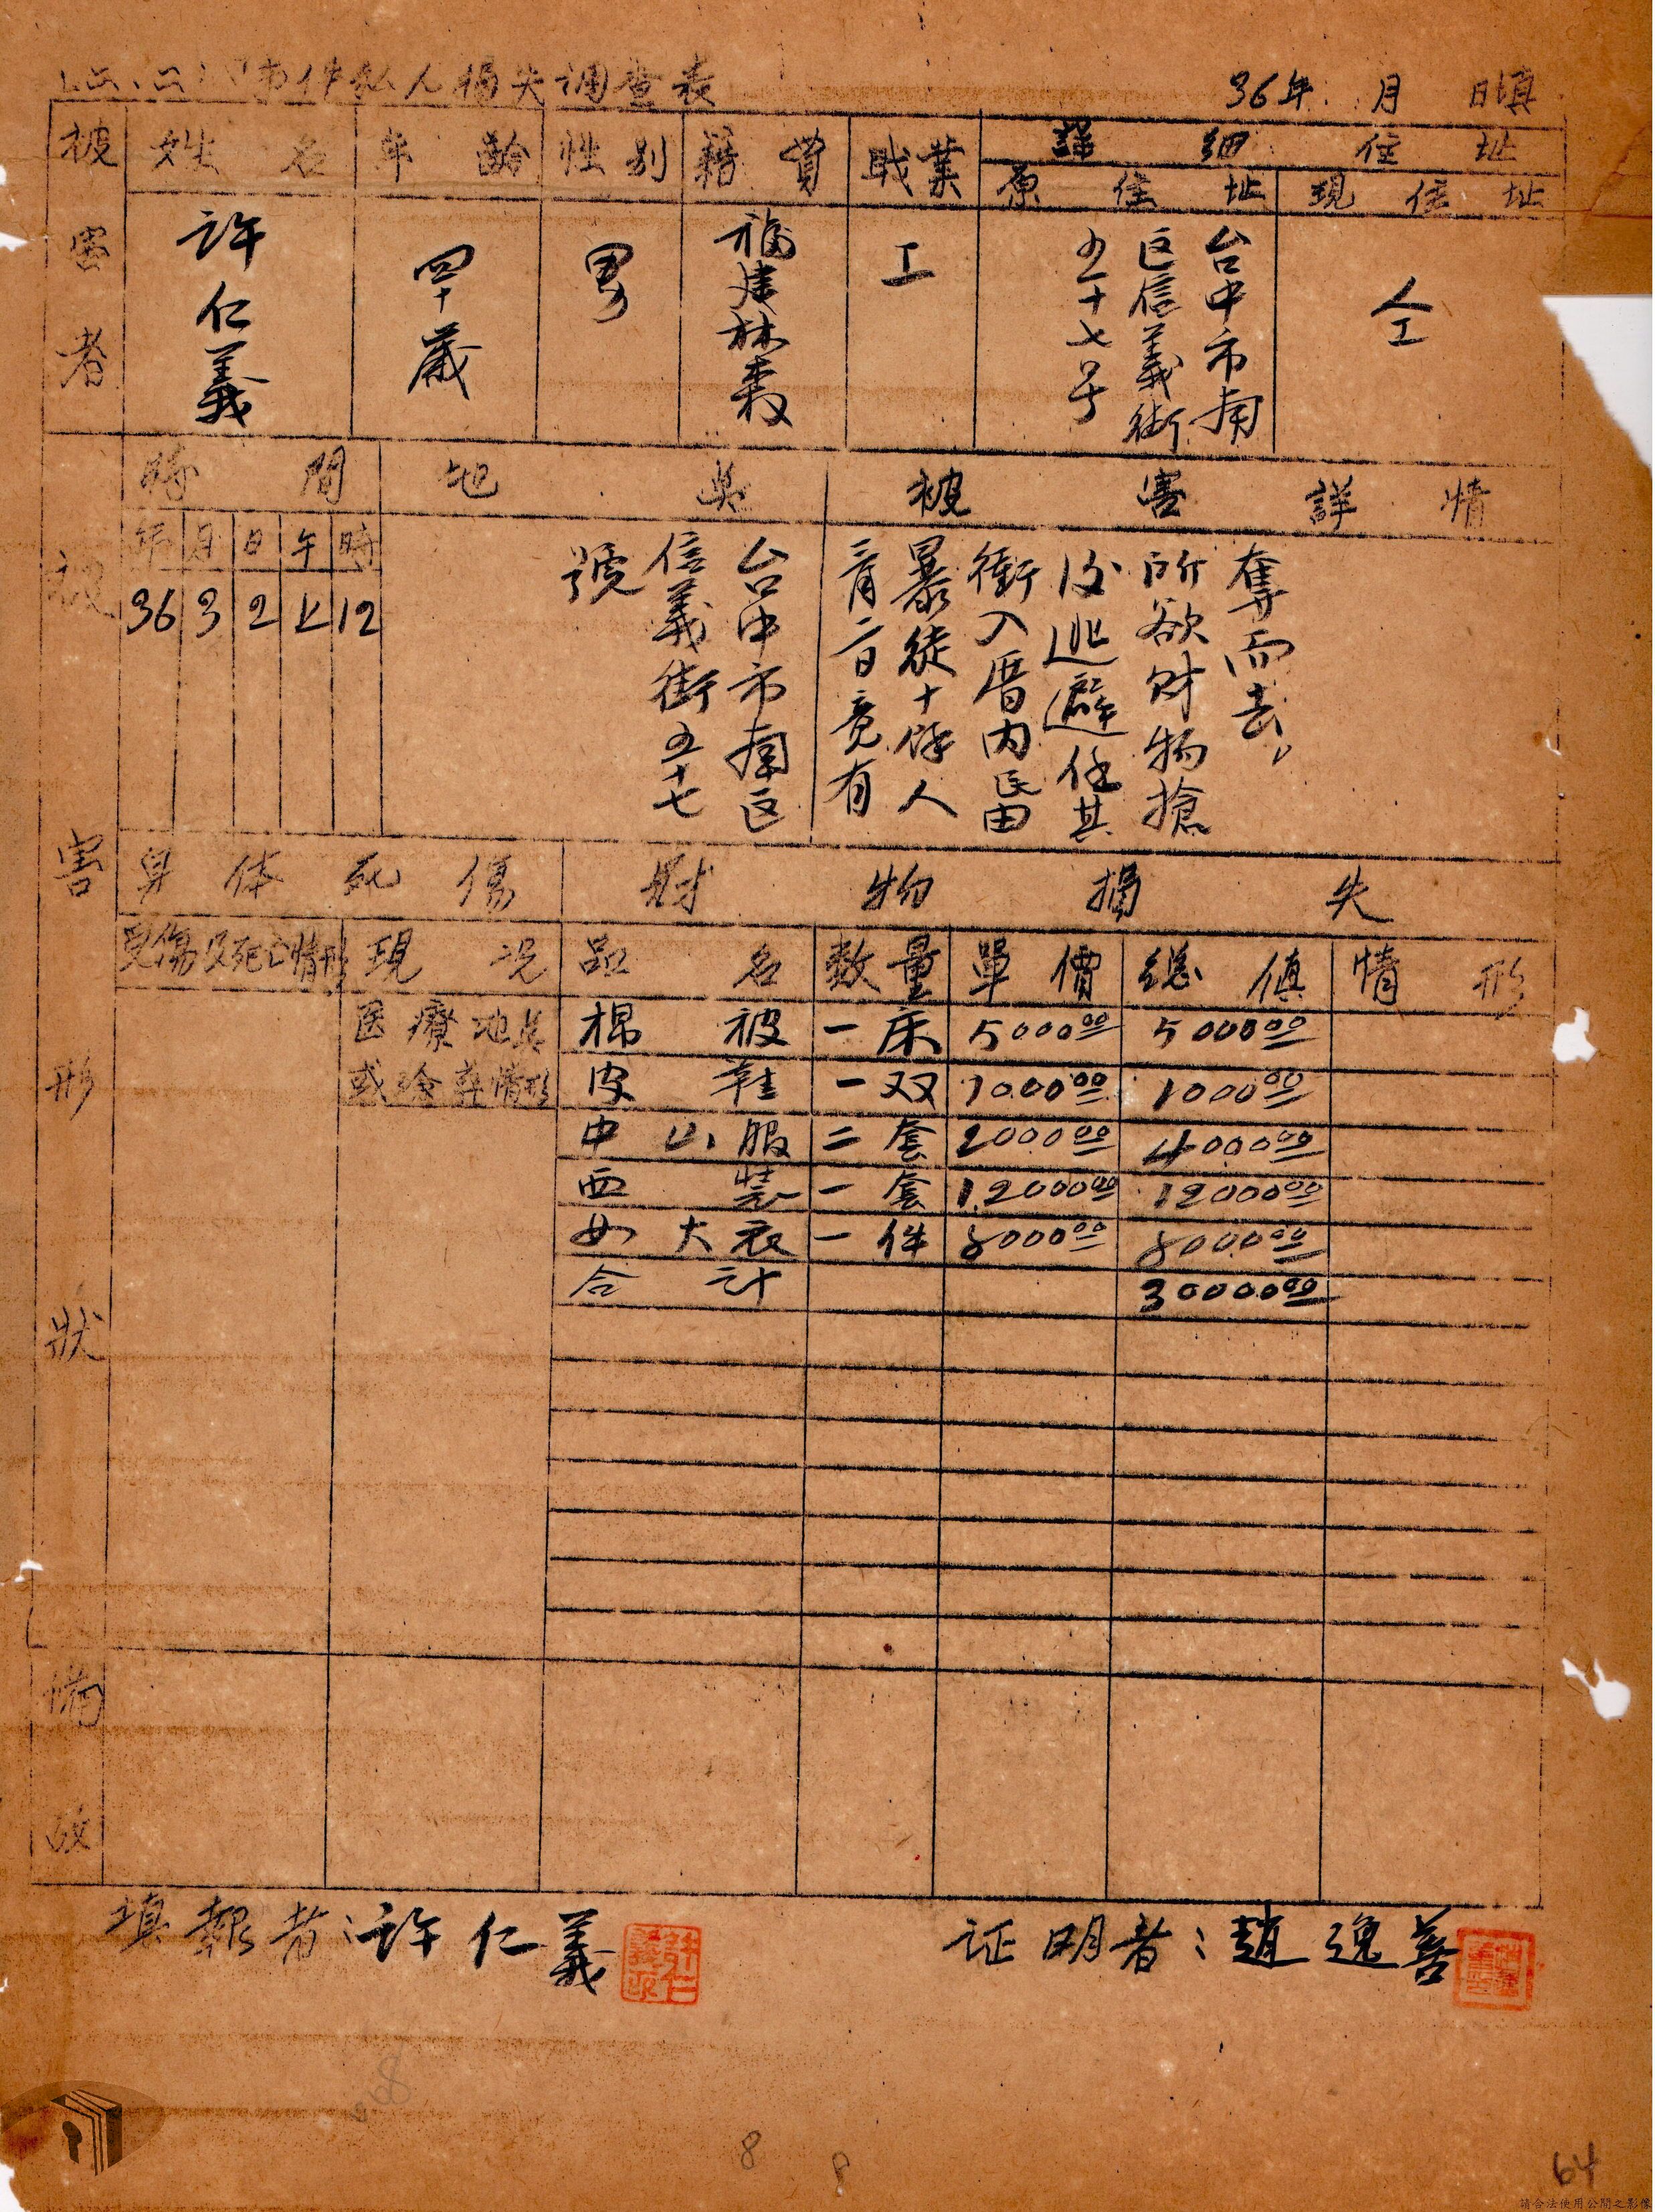 二.二八事件私人損失調查表
36年 月 日填
被害者
姓名 年齡 性別 籍貫 職業 詳細住址
原住址 現住址
許仁義
四十歲
男
福建林森
工
台中市南
区信義街
五十七号
仝
被害形狀
時間 地点 被害詳情
年 月 日 午 時
36 3 2 上 12
台中市南区
信義街五十七
號
三月二日竟有
暴徒十餘人
衝入厝内民由
後逃避任其
所欲財物搶
奪而去,
身体死傷 財物損失
受傷及死亡情形 現況 品名 数量 單價 總值 情形
医療地点
或殮葬情形
棉被 一床 5000.00 5000.00
皮鞋 一双 1000.00 1000.00
中山服 二套 2000.00 4000.00
西裝 一套 12000.00 12000.00
女大衣 一件 8000.00 8000.00
合计 30000.00
備攷
填報者:许仁義
证明者:趙逸善
8
64
請合法使用公開之影像